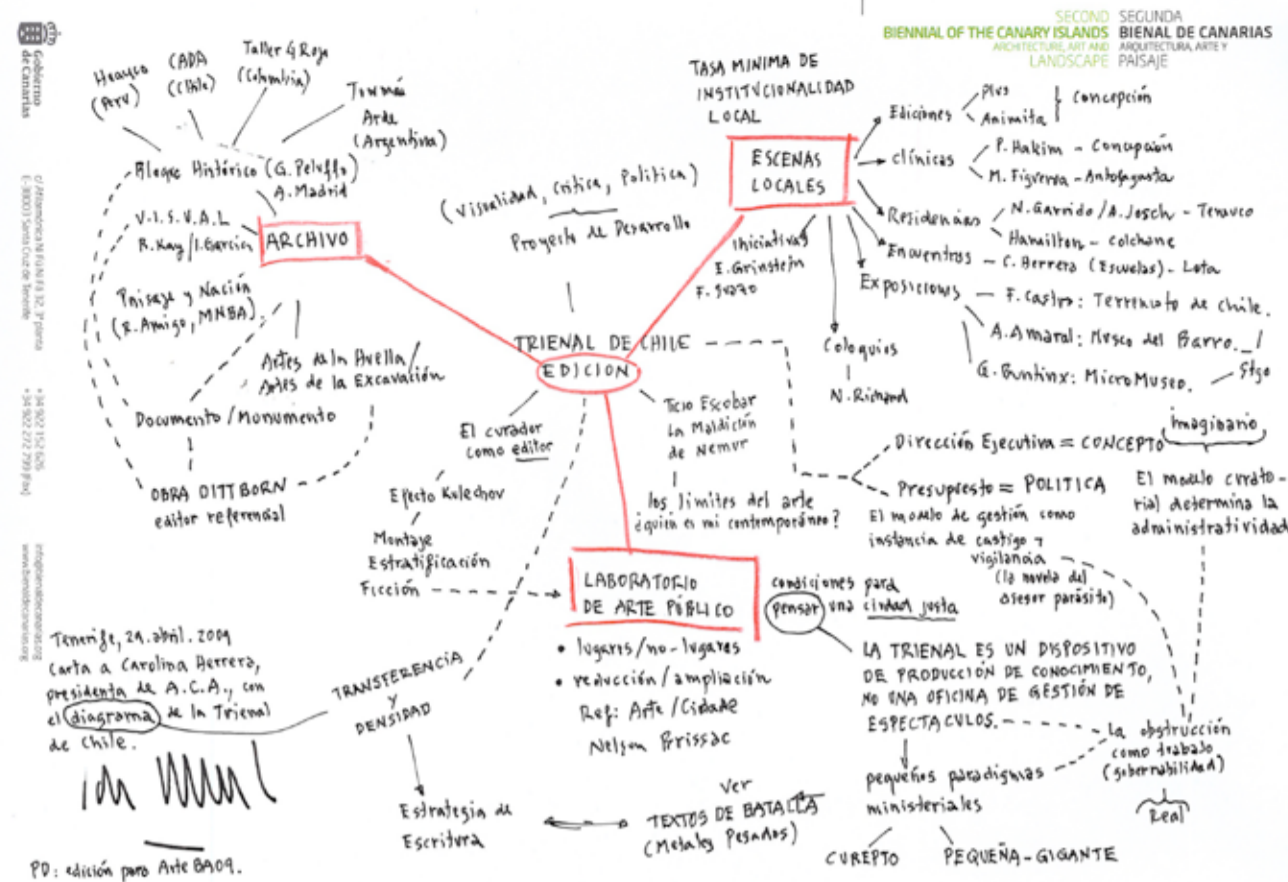 SECOND SEGUNDA
BIENNIAL OF THE CANARY ISLANDS BIENAL DE CANARIAS
ARCHITECTURE, ART AND ARQUITECTURA, ARTE Y
LANDSCAPE PAISAJE
Gobierno
de Canarias
E-38003 Santa Cruz de Tenerife
+34 922 152 626
(Perú)
CADA
(Chile)
Taller 4 Rojo
(Colombia)
Arde
(Argentina)
Bloque Histórico (G. Peluffo)
A. Madrid
V.I.S.U.A.L
R. Kay/I. García
ARCHIVO
Paisaje y Nación
(R. Amigo, MNBA)
Artes de la Huella/
Artes de la Excavación
Documento/Monumento
OBRA DITTBORN
editor referencial
(Visualidad, crítica, Política)
Proyecto de Desarrollo
TRIENAL DE CHILE
EDICION
El curador
como editor
Efecto Kulechov
Montaje
Estratificación
Ficción
Ticio Escobar
La Maldición
de Nemur
los límites del arte
¿quién es mi contemporáneo?
TASA MINIMA DE
INSTITUCIONALIDAD
LOCAL
ESCENAS
LOCALES
Ediciones
Plus
Animita
Concepción
clínicas
P. Hakim - Concepción
M. Figueroa - Antofagasta
Residencias
N. Garrido/A. Josch - Temuco
Hamilton - Colchane
Encuentros - C. Herrera (Escuelas) - Lota
Exposiciones - F. Castro: Terremoto de Chile.
A. Amaral: Museo del Barro.
G. Buntinx: MicroMuseo. - Stgo
Iniciativas
E. Grinstein
Coloquios
N. Richard
Dirección Ejecutiva = CONCEPTO
imaginario
Presupuesto = POLITICA
El modelo de gestión como
instancia de castigo y
vigilancia
(la novela del
asesor parásito)
El modelo curato-
rial determina la
administratividad
LABORATORIO
DE ARTE PÚBLICO
condiciones para
pensar una ciudad justa
• lugares/no-lugares
• reducción/ampliación
Ref: Arte/Cidade
Nelson Brissac
LA TRIENAL ES UN DISPOSITIVO
DE PRODUCCIÓN DE CONOCIMIENTO,
NO UNA OFICINA DE GESTIÓN DE
ESPECTACULOS.
La obstrucción
como trabajo
(gobernabilidad)
Real
pequeños paradigmas
ministeriales
CUREPTO
PEQUEÑA-GIGANTE
TRANSFERENCIA
Y
DENSIDAD
Estrategia de
Escritura
Ver
TEXTOS DE BATALLA
(Metales Pesados)
Tenerife, 29.abril.2009
Carta a Carolina Herrera,
presidenta de A.C.A., con
el diagrama de la Trienal
de Chile.
PD: edición para Arte BA09.